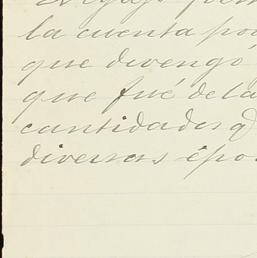 la cuenta por
que devengó
que fué de la
cantidades q
diversas épo